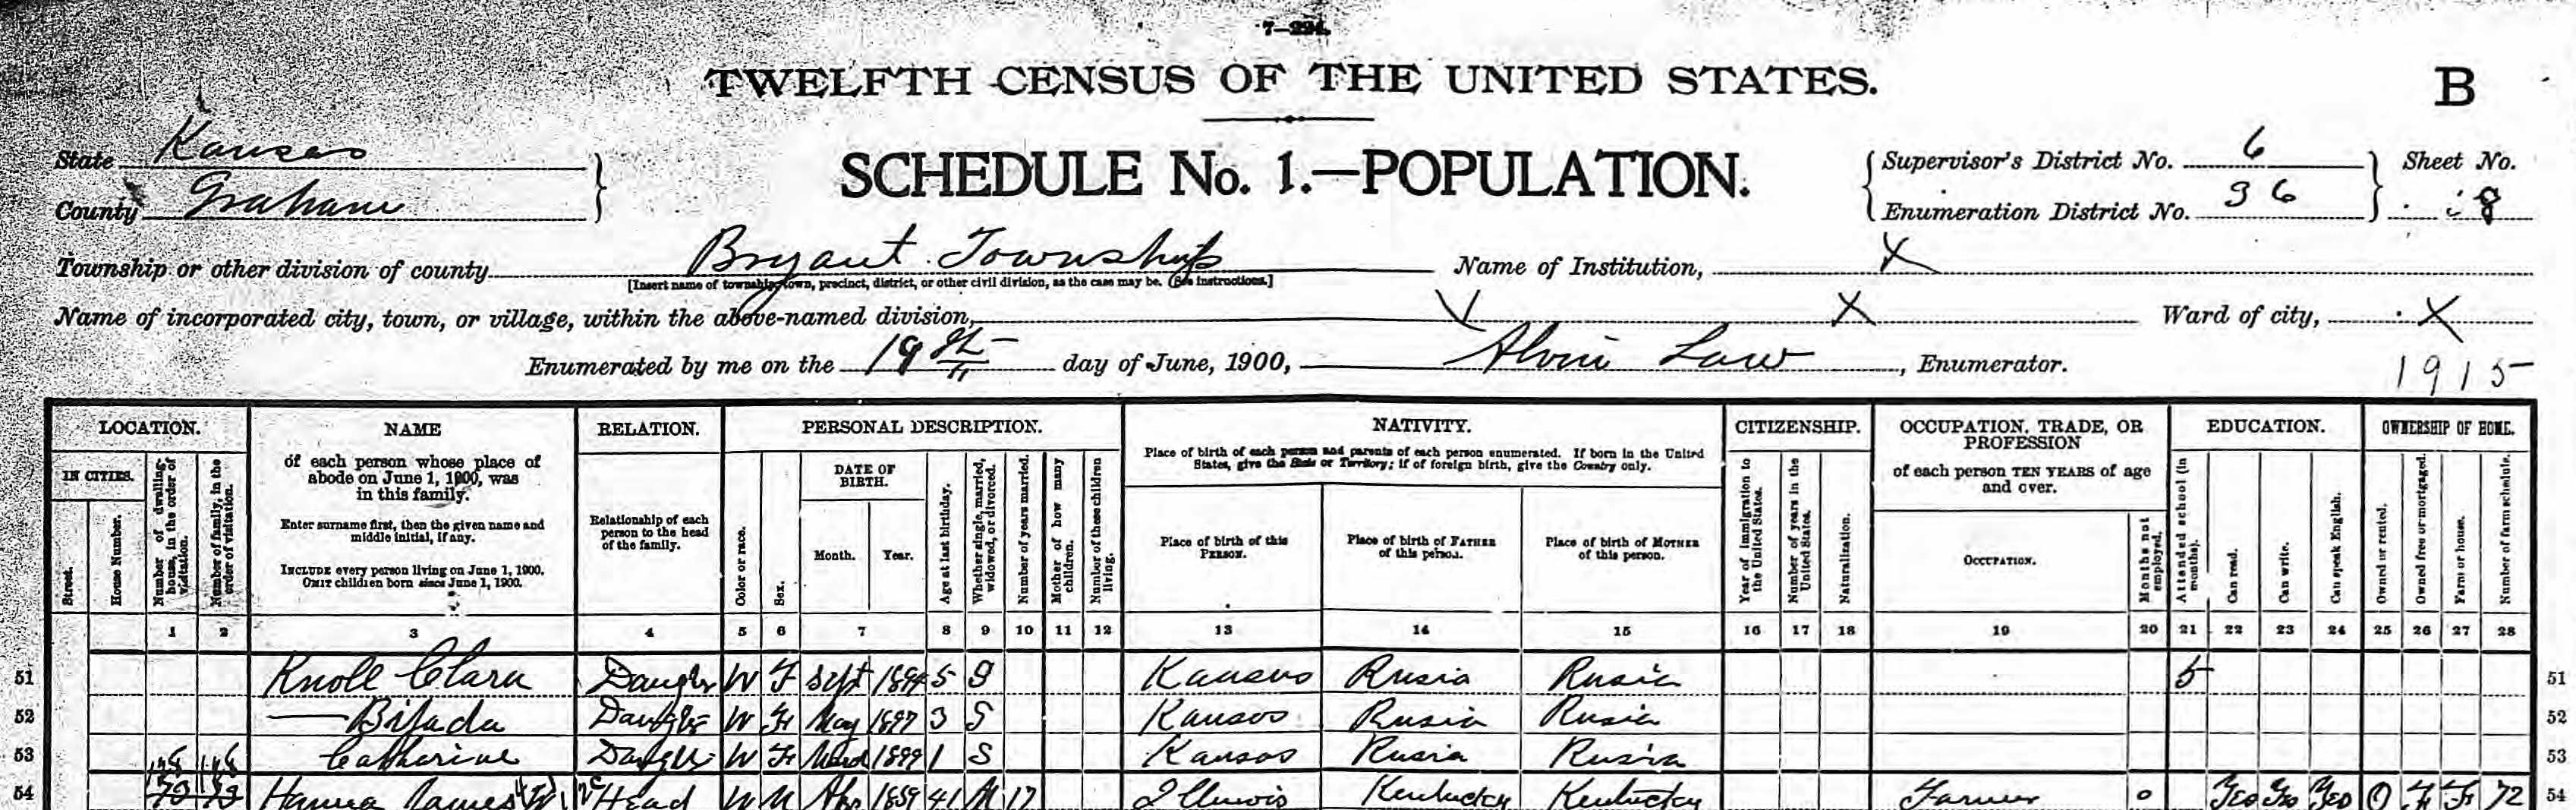 7—224.
TWELFTH CENSUS OF THE UNITED STATES.
B
State Kansas
County Graham
SCHEDULE No. 1.—POPULATION.
Supervisor's District No. 6
Enumeration District No. 36
Sheet No.
8
Township or other division of county Bryant Township
[Insert name of township, town, precinct, district, or other civil division, as the case may be. (See instructions.]
Name of Institution, X
Name of incorporated city, town, or village, within the above-named division, X X
Ward of city, X
Enumerated by me on the 19th day of June, 1900, Alvin Law, Enumerator.
1915
LOCATION.
IN CITIES.
Street.
House Number.
Number of dwelling-house, in the order of visitation.
Number of family, in the order of visitation.
NAME
of each person whose place of
abode on June 1, 1900, was
in this family.
Enter surname first, then the given name and
middle initial, if any.
INCLUDE every person living on June 1, 1900.
OMIT children born since June 1, 1900.
RELATION.
Relationship of each
person to the head
of the family.
PERSONAL DESCRIPTION.
Color or race.
Sex.
DATE OF
BIRTH.
Month.
Year.
Age at last birthday.
Whether single, married,
widowed, or divorced.
Number of years married.
Mother of how many
children.
Number of these children
living.
NATIVITY.
Place of birth of each person and parents of each person enumerated. If born in the United
States, give the State or Territory; if of foreign birth, give the Country only.
Place of birth of this
PERSON.
Place of birth of FATHER
of this person.
Place of birth of MOTHER
of this person.
CITIZENSHIP.
Year of immigration to
the United States.
Number of years in the
United States.
Naturalization.
OCCUPATION, TRADE, OR
PROFESSION
of each person TEN YEARS of age
and over.
OCCUPATION.
Months not
employed.
EDUCATION.
Attended school (in
months).
Can read.
Can write.
Can speak English.
OWNERSHIP OF HOME.
Owned or rented.
Owned free or mortgaged.
Farm or house.
Number of farm schedule.
1 2 3 4 5 6 7 8 9 10 11 12 13 14 15 16 17 18 19 20 21 22 23 24 25 26 27 28
51 Knoll Clara Daughter W F Sept 1894 5 S Kansas Rusia Rusia 5 51
52 — Daughter W F May 1897 3 S Kansas Rusia Rusia 52
53 Catharine Daughter W F March 1899 1 S Kansas Rusia Rusia 53
54 Hanna James W Head W M Apr 1859 41 M 17 Illinois Kentucky Kentucky Farmer 0 Yes Yes Yes O F F 72 54